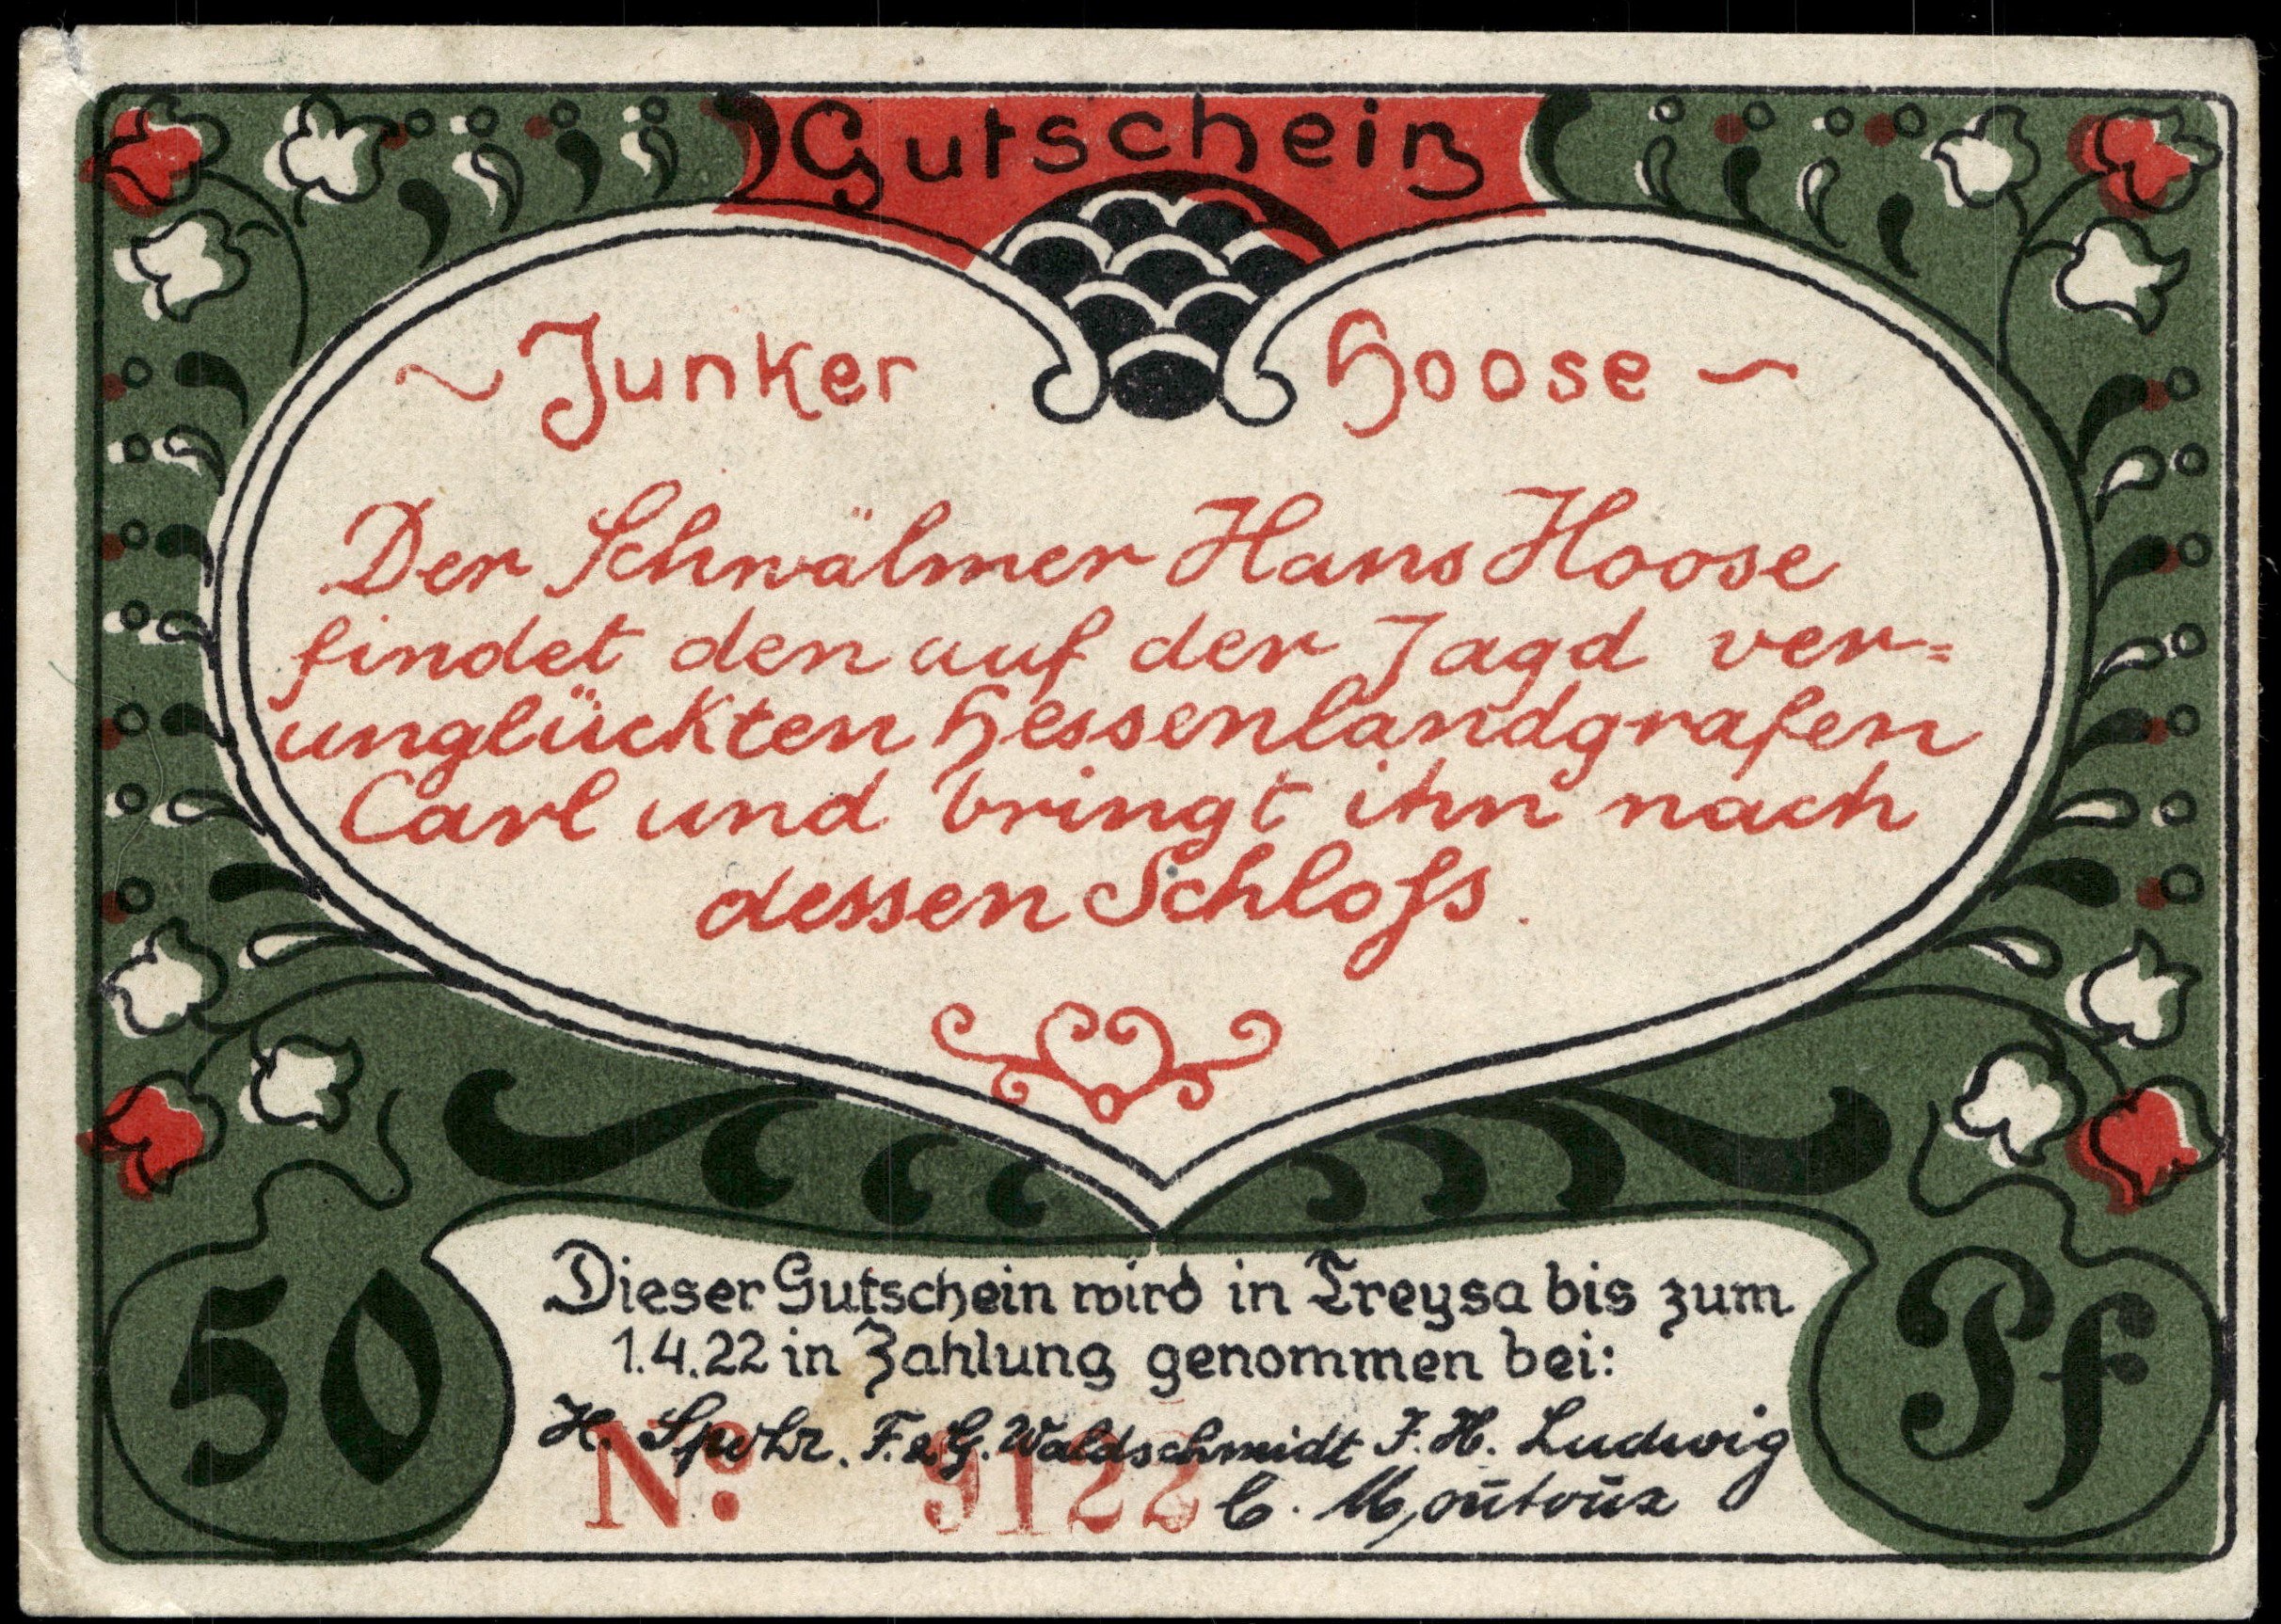 Gutschein
~ Junker Hoose ~
Der Schwälmer Hans Hoose
findet den auf der Jagd ver=
unglückten Hessenlandgrafen
Carl und bringt ihn nach
dessen Schloſs.
50 Pf
Dieser Gutschein wird in Treysa bis zum
1.4.22 in Zahlung genommen bei:
H. Spohr. F. & G. Waldschmidt J. H. Ludwig
No 9122 C.